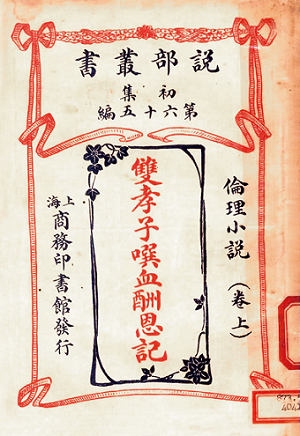 説部叢書
初集
第六十五編
倫理小説(卷上)
雙孝子噀血酬恩記
上海
商務印書館發行